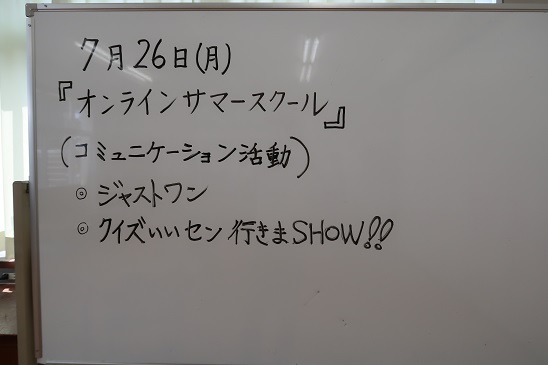 7月26日(月)
『オンラインサマースクール』
(コミュニケーション活動)
◎ ジャストワン
◎ クイズいいセン行きまSHOW!!